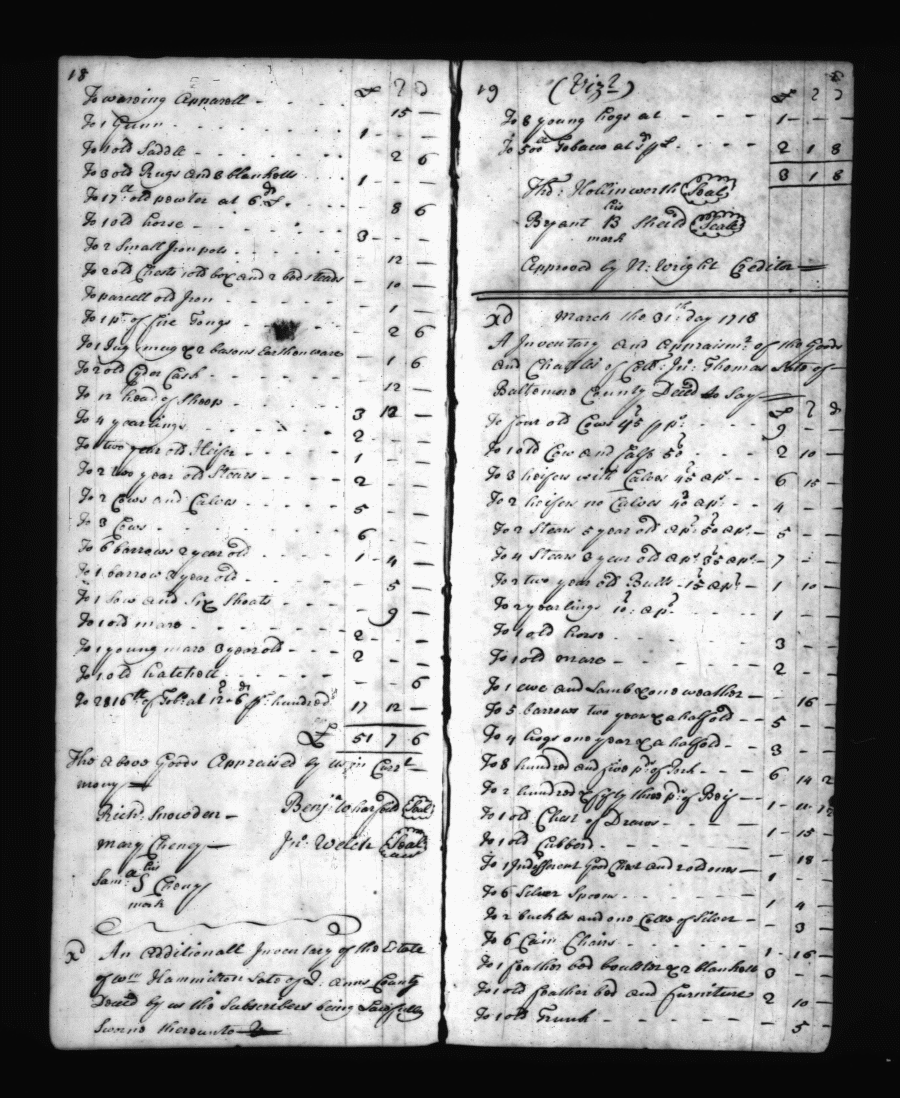 18
£ s d
To waring Apparell - 15 —
To 1 Gunn 1 - - —
To 1 old Saddle 2 6
To 3 old Rugs and 3 blanketts 1 - - —
To 17 lb old pewter at 6 d 8 6
To 1 old horse 3 - - —
To 2 Small Iron pots 12 —
To 2 old Chests 1 old box and 2 bedsteads 10 —
To parcell old Iron 1 —
To 1 pr of fire Tongs 2 6
To 1 Jug 1 mug & 2 basons Earthenware 1 6
To 2 old Cyder Cask 12 —
To 12 head of Sheep 3 12 —
To 4 yearlings 2 - —
To 1 two year old Heifer 1 - —
To 2 two year old Stears 2 - —
To 2 Cows and Calves 5 - —
To 3 Cows 6 - —
To 6 barrows 2 year old 1 4 —
To 1 barrow 3 year old 5 —
To 1 Sow and Six Shoats 9 —
To 1 old mare 2 - —
To 1 young mare 3 year old 2 - —
To 1 old hatchett 6
To 2816 lb of Tobo at 12 s 6 d pr hundred 17 12 —
£ 51 7 6
The above Goods Appraised by us in Currt
mony
Richd Snowden Benja Wharfeild Seal
Mary Cheney Jno Welch Seal
his
Saml S Cheny
mark
Xd An Additionall Inventory of the Estate
of Wm Hammilton Late of Q: Anns County
Deced by us the Subscribers being Lawfully
Sworne thereunto
19 (Vizt)
£ s d
To 8 young hogs at 1 - -
To 500 lb Tobaco at 2 1 8
3 1 8
Tho: Hollinworth Seal
his
Bryant B Sheild Seale
mark
Approved by N: Wright Creditor
Xd March the 31th day 1718
A Inventory and Appraismt of the Goods
and Chattles of Coll: Jno: Thomas Late of
Baltemore County Deced to Say £ s d
To four old Cows 45 s pr 9 - -
To 1 old Cow and Calf 50 s 2 10 —
To 3 heifers with Calves 45 s a ps 6 15 —
To 2 heifers no Calves 40 s a ps 4 - —
To 2 Stears 5 year old a ps 50 s a ps 5 - —
To 4 Stears 3 year old a ps 35 s a ps 7 - —
To 2 two year old Bulls 15 s a ps 1 10 —
To 2 yearlings 10 s a ps 1 - —
To 1 old horse 3 - —
To 1 old mare 2 - —
To 1 ewe and Lamb & one weather 16 —
To 5 barrows two year & a half old 5 - —
To 4 hogs one year & a half old 3 - —
To 8 hundred and five ps of Pork 6 14 2
To 2 hundred & fifty three ps of Beif 1
To 1 old Chest of Draws 1 15 —
To 1 old Cubberd 18 —
To 1 Indifferent good Chest and 2 old ones 1 - —
To 6 Silver Spoons 1 4 —
To 2 buckles and one of Silver 3 —
To 6 Cain Chairs 1 16 —
To 1 feather bed boulster & 2 blankets 3 - —
To 1 old feather bed and furniture 2 10 —
To 1 old Trunk 5 —